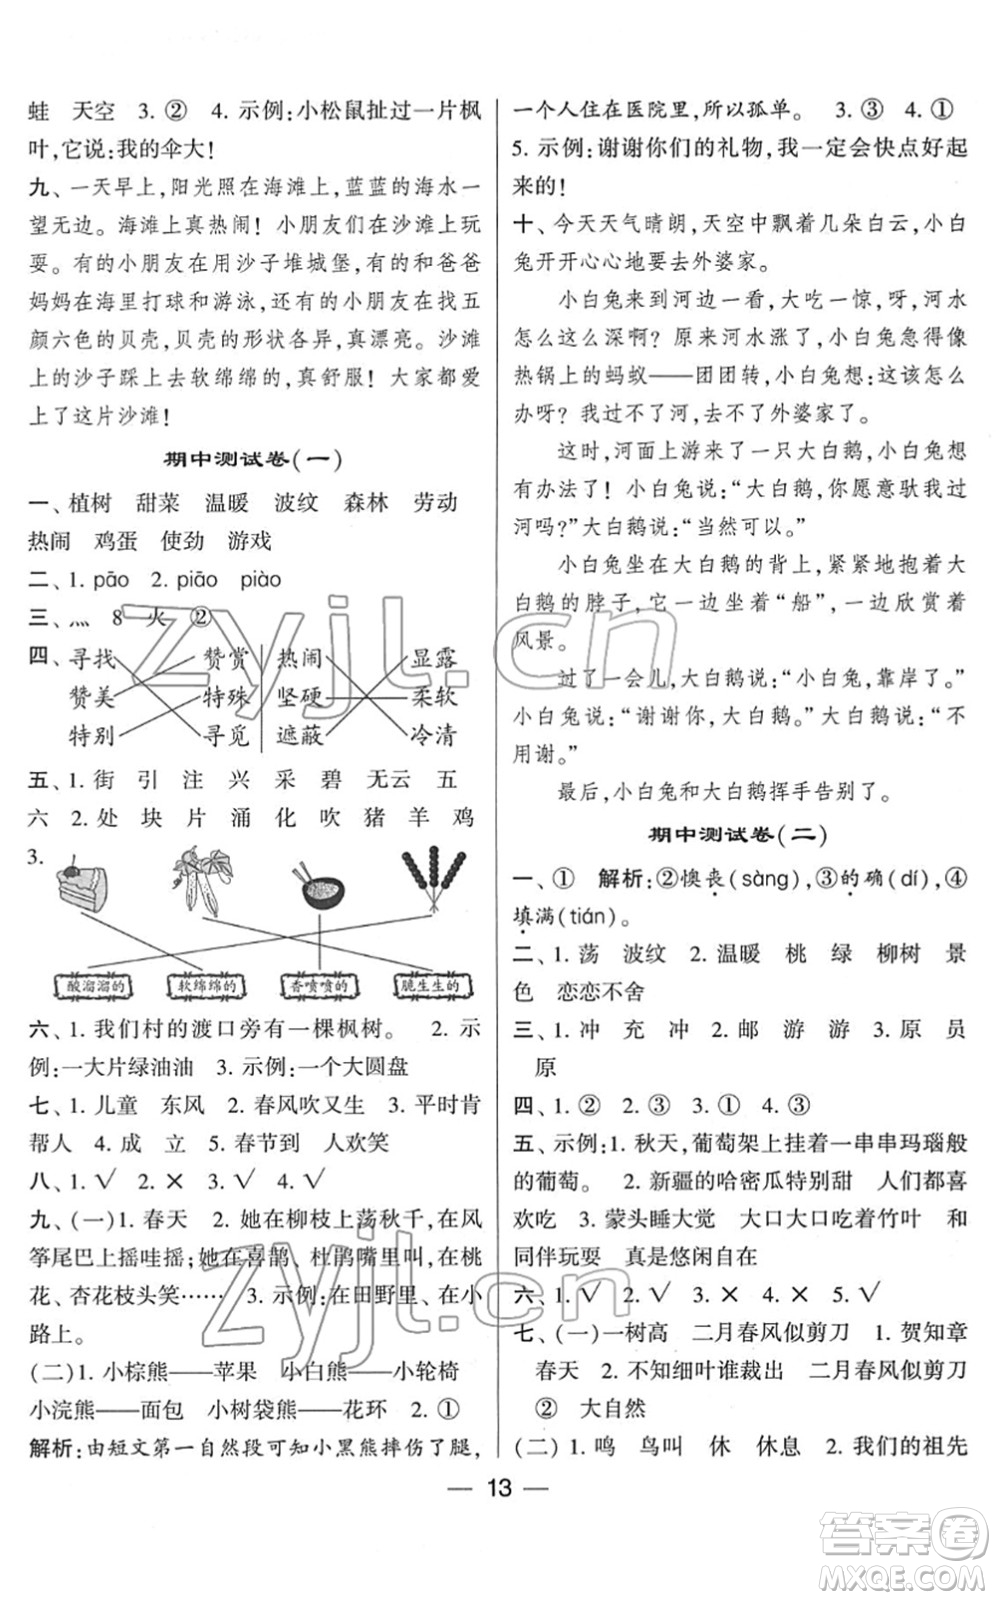 蛙 天空 3. ② 4. 示例:小松鼠扯过一片枫
叶,它说:我的伞大!
九、一天早上,阳光照在海滩上,蓝蓝的海水一
望无边。海滩上真热闹!小朋友们在沙滩上玩
耍。有的小朋友在用沙子堆城堡,有的和爸爸
妈妈在海里打球和游泳,还有的小朋友在找五
颜六色的贝壳,贝壳的形状各异,真漂亮。沙滩
上的沙子踩上去软绵绵的,真舒服!大家都爱
上了这片沙滩!
期中测试卷(一)
一、植树 甜菜 温暖 波纹 森林 劳动
热闹 鸡蛋 使劲 游戏
二、1. pāo 2. piāo piào
三、灬 8 火 ②
四、寻找 赞赏 热闹 显露
赞美 特殊 坚硬 柔软
特别 寻觅 遮蔽 冷清
五、1. 街 引 注 兴 采 碧 无云 五
六 2. 处 块 片 涌 化 吹 猪 羊 鸡
3.
酸溜溜的 软绵绵的 香喷喷的 脆生生的
六、1. 我们村的渡口旁有一棵枫树。 2. 示
例:一大片绿油油 3. 示例:一个大圆盘
七、1. 儿童 东风 2. 春风吹又生 3. 平时肯
帮人 4. 成 立 5. 春节到 人欢笑
八、1. √ 2. × 3. √ 4. √
九、(一)1. 春天 2. 她在柳枝上荡秋千,在风
筝尾巴上摇哇摇;她在喜鹊、杜鹃嘴里叫,在桃
花、杏花枝头笑…… 3. 示例:在田野里、在小
路上。
(二)1. 小棕熊——苹果 小白熊——小轮椅
小浣熊——面包 小树袋熊——花环 2. ①
解析:由短文第一自然段可知小黑熊摔伤了腿,
一个人住在医院里,所以孤单。 3. ③ 4. ①
5. 示例:谢谢你们的礼物,我一定会快点好起
来的!
十、今天天气晴朗,天空中飘着几朵白云,小白
兔开开心心地要去外婆家。
小白兔来到河边一看,大吃一惊,呀,河水
怎么这么深啊?原来河水涨了,小白兔急得像
热锅上的蚂蚁——团团转,小白兔想:这该怎么
办呀?我过不了河,去不了外婆家了。
这时,河面上游来了一只大白鹅,小白兔想
有办法了!小白兔说:“大白鹅,你愿意驮我过
河吗?”大白鹅说:“当然可以。”
小白兔坐在大白鹅的背上,紧紧地抱着大
白鹅的脖子,它一边坐着“船”,一边欣赏着
风景。
过了一会儿,大白鹅说:“小白兔,靠岸了。”
小白兔说:“谢谢你,大白鹅。”大白鹅说:“不
用谢。”
最后,小白兔和大白鹅挥手告别了。
期中测试卷(二)
一、① 解析:②懊丧(sàng),③的确(dí),④
填满(tián)。
二、1. 荡 波纹 2. 温暖 桃 绿 柳树 景
色 恋恋不舍
三、1. 冲 充 冲 2. 邮 游 游 3. 原 员
原
四、1. ② 2. ③ 3. ① 4. ③
五、示例:1. 秋天,葡萄架上挂着一串串玛瑙般
的葡萄。 2. 新疆的哈密瓜特别甜 人们都喜
欢吃 3. 蒙头睡大觉 大口大口吃着竹叶 和
同伴玩耍 真是悠闲自在
六、1. √ 2. √ 3. × 4. × 5. √
七、(一)一树高 二月春风似剪刀 1. 贺知章
春天 2. 不知细叶谁裁出 二月春风似剪刀
② 大自然
(二)1. 鸣 鸟叫 休 休息 2. 我们的祖先
— 13 —
zyjl.cn
zyjl.cn
答案圈
MXQE.COM